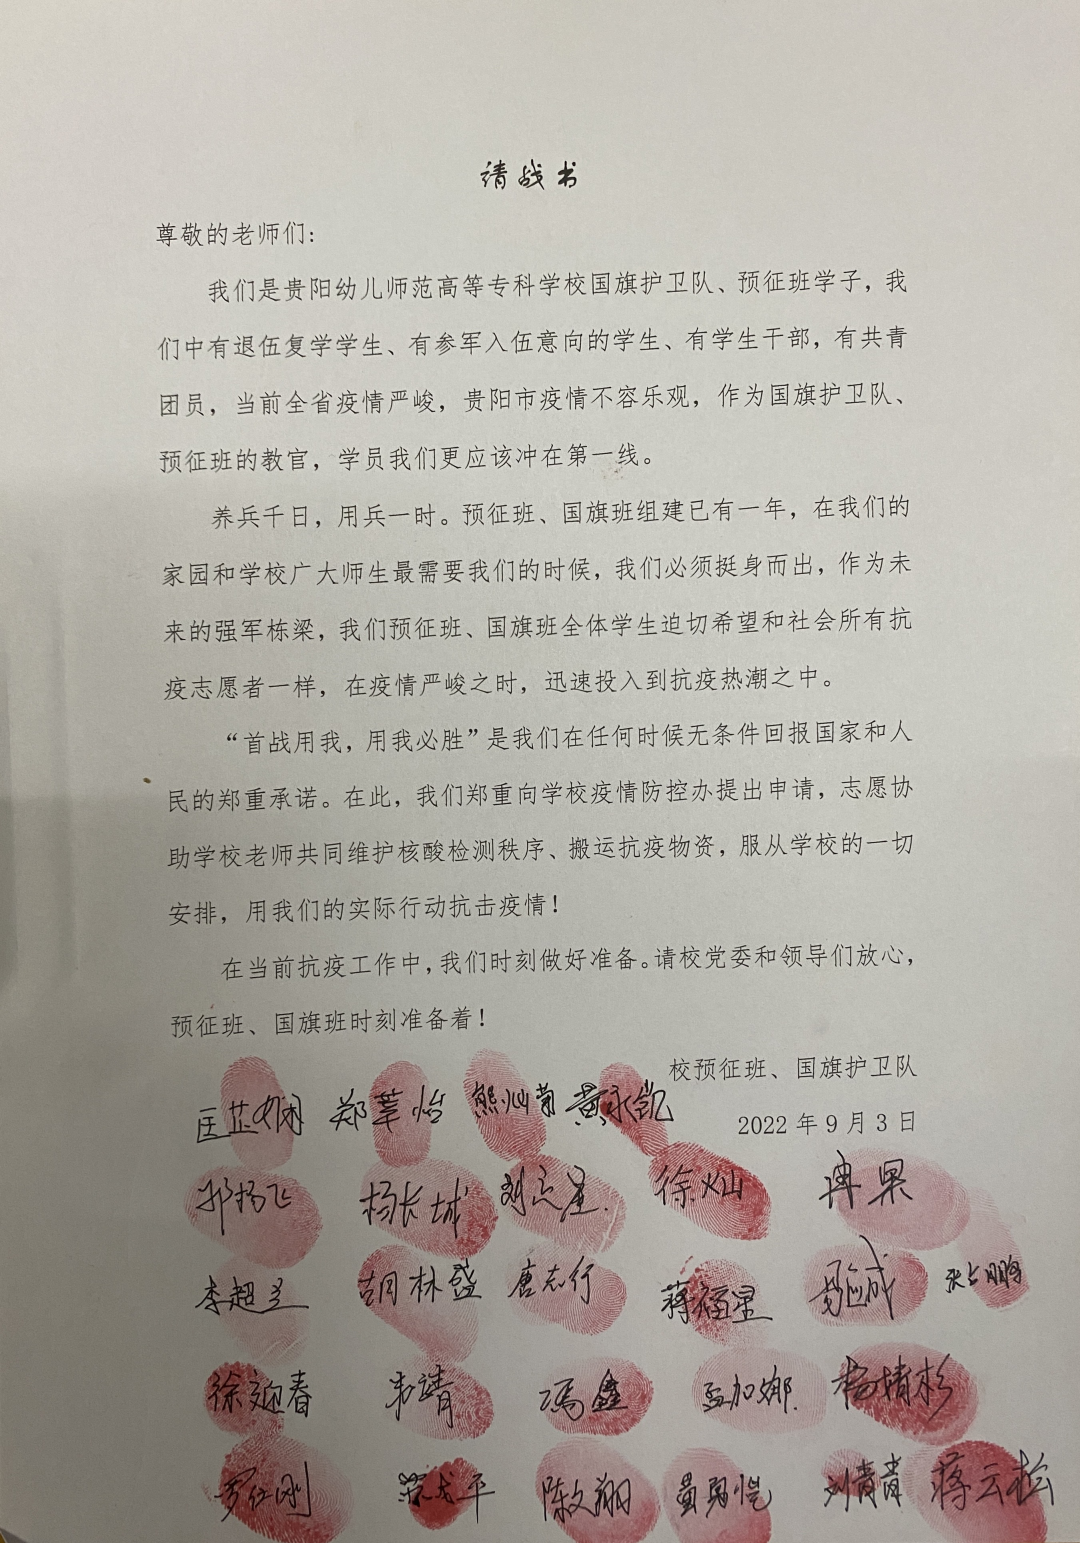 请战书
尊敬的老师们：
我们是贵阳幼儿师范高等专科学校国旗护卫队、预征班学子，我
们中有退伍复学学生、有参军入伍意向的学生、有学生干部，有共青
团员，当前全省疫情严峻，贵阳市疫情不容乐观，作为国旗护卫队、
预征班的教官，学员我们更应该冲在第一线。
养兵千日，用兵一时。预征班、国旗班组建已有一年，在我们的
家园和学校广大师生最需要我们的时候，我们必须挺身而出，作为未
来的强军栋梁，我们预征班、国旗班全体学生迫切希望和社会所有抗
疫志愿者一样，在疫情严峻之时，迅速投入到抗疫热潮之中。
“首战用我，用我必胜”是我们在任何时候无条件回报国家和人
民的郑重承诺。在此，我们郑重向学校疫情防控办提出申请，志愿协
助学校老师共同维护核酸检测秩序、搬运抗疫物资，服从学校的一切
安排，用我们的实际行动抗击疫情！
在当前抗疫工作中，我们时刻做好准备。请校党委和领导们放心，
预征班、国旗班时刻准备着！
校预征班、国旗护卫队
2022年9月3日
匡芷娴 郑莘怡 熊灿菊 黄永凯
杨长城 刘立星 徐灿 冉果
胡林盛 唐志行 蒋福星 张占鹏
徐迎春 韦靖 冯鑫 孟加娜 杨精杉
罗仕刚 陈文翔 黄勇恺 刘青青 蒋云松